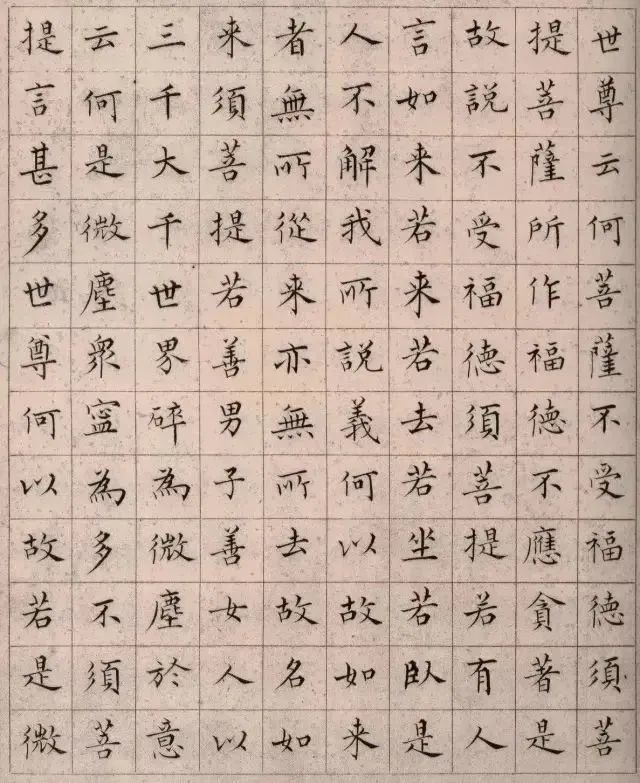 世尊云何菩薩不受福德須菩
提菩薩所作福德不應貪著是
故説不受福德須菩提若有人
言如来若来若去若坐若臥是
人不解我所說義何以故如来
者無所從来亦無所去故名如
来須菩提若善男子善女人以
三千大千世界碎為微塵於意
云何是微塵衆寍為多不須菩
提言甚多世尊何以故若是微